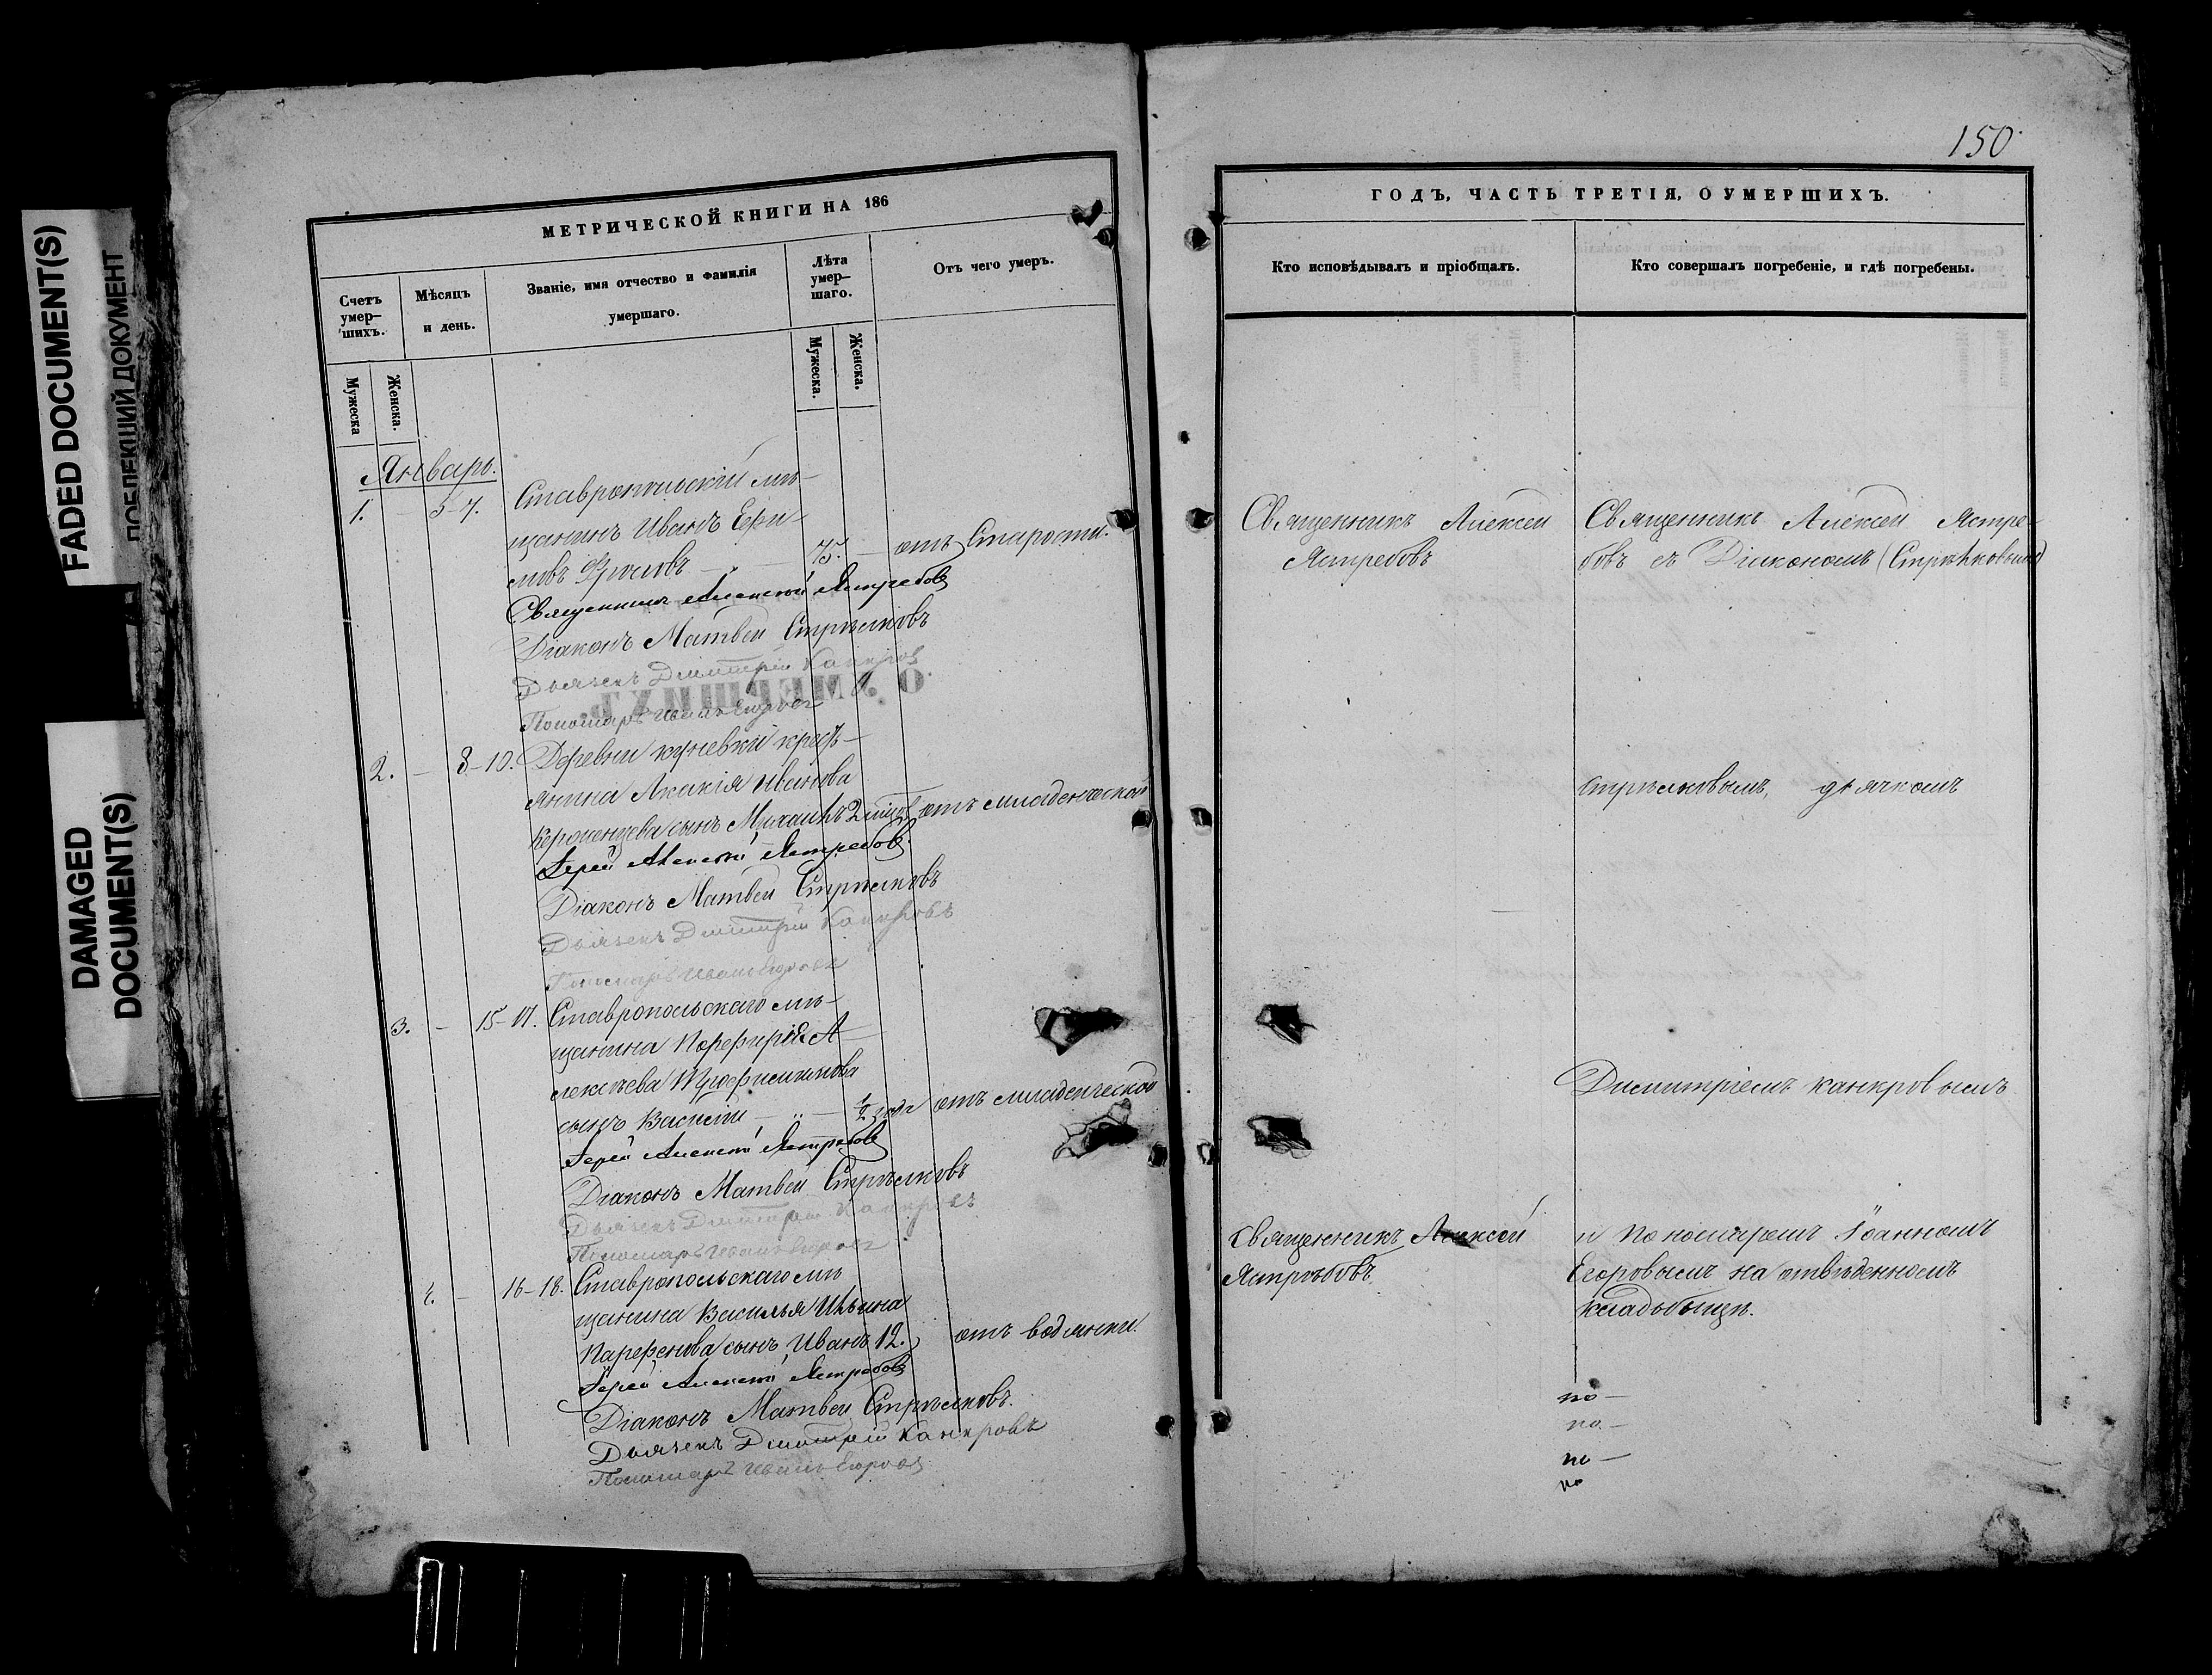 FADED DOCUMENT(S)
ДОКУМЕНТ
DAMAGED
DOCUMENT(S)
150
МЕТРИЧЕСКОЙ КНИГИ НА 186
Счетъ
умер-
шихъ.
Мѣсяцъ
и день.
Званіе, имя отчество и фамилія
умершаго.
Лѣта
умер-
шаго.
Отъ чего умеръ.
Мужеска
Женска.
Мужеска.
Женска.
Январь.
1. - 5-7. Ставропольскій мѣ-
щанинъ Иванъ Ефи-
мовъ 75. - отъ старости.
Священникъ Алексѣй Ястребовъ
Діаконъ Матвей Стрѣлковъ
Дьячекъ Димитрій Канкровъ
Пономарь Иванъ Егоровъ
О УМЕРШИХЪ.
2. - 8-10. Деревни кунѣевки кресть-
янина Акакія Иванова
сынъ Михаилъ 2 отъ младенческой
Іерей Алексѣй Ястребовъ.
Діаконъ Матвей Стрѣлковъ
Дьячекъ Димитрій Канкровъ
Пономарь Иванъ Егоровъ
3. - 15-17. Ставропольскаго мѣ-
щанина Порефирія А-
лексѣева
сынъ Василій - „ - ½ года отъ младенческой
Іерей Алексѣй Ястребовъ
Діаконъ Матвей Стрѣлковъ
Дьячекъ Димитрій Канкровъ
Пономарь Иванъ Егоровъ
4. - 16-18. Ставропольскаго мѣ
щанина Василья Ильина
Парефенова сынъ Иванъ 12. отъ водянки.
Іерей Алексѣй Ястребовъ
Діаконъ Матвей Стрѣлковъ.
Дьячекъ Димитрій Канкровъ
Пономарь Иванъ Егоровъ
ГОДЪ, ЧАСТЬ ТРЕТІЯ, О УМЕРШИХЪ.
Кто исповѣдывалъ и пріобщалъ.
Кто совершалъ погребеніе, и гдѣ погребены.
Священникъ Алексей
Ястребовъ
Священникъ Алексей Ястре-
бовъ съ Діакономъ (Стрѣлковымъ)
Стрѣлковымъ, дьячкомъ
Димитріемъ Канкровымъ
Священникъ Алексей
Ястребовъ
и пономаремъ Іоанномъ
Егоровымъ на отвѣденномъ
кладбищѣ.
по-
по-
по-
по